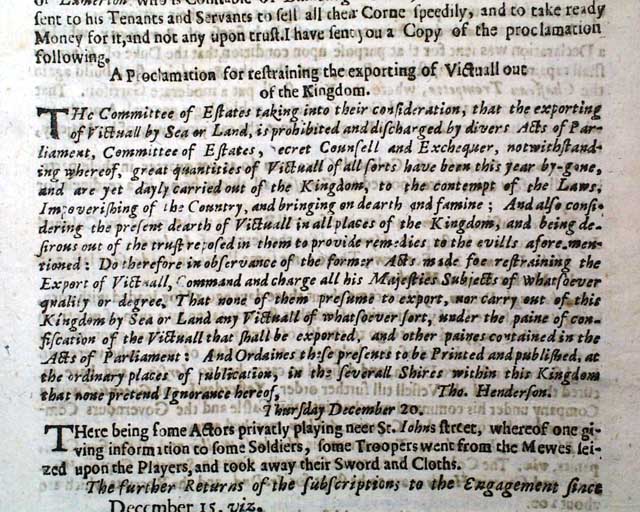 of Lamerton who is Constable of
sent to his Tenants and Servants to sell all their Corne speedily, and to take ready
Money for it, and not any upon trust. I have sent you a Copy of the proclamation
following.
A Proclamation for restraining the exporting of Victuall out
of the Kingdom.
THe Committee of Estates taking into their consideration, that the exporting
of Victuall by Sea or Land, is prohibited and discharged by divers Acts of Par-
liament, Committee of Estates, ecret Counsell and Exchequer, notwithstand-
ing whereof, great quantities of Victuall of all sorts have been this year by-gone,
and are yet dayly carried out of the Kingdom, to the contempt of the Laws,
Impoverishing of the Country, and bringing on dearth and famine; And also consi-
dering the present dearth of Victuall in all places of the Kingdom, and being de-
sirous out of the trust reposed in them to provide remedies to the evills afore men-
tioned: Do therefore in observance of the former Acts made foe restraining the
Export of Victuall, Command and charge all his Majesties Subjects of whatsoever
quality or degree, That none of them presume to export, nor carry out of this
Kingdom by Sea or Land any Victuall of whatsoever sort, under the paine of con-
fiscation of the Victuall that shall be exported, and other paines contained in the
Acts of Parliament: And Ordaines these presents to be Printed and published, at
the ordinary places of publication, in the severall Shires within this Kingdom
that none pretend Ignorance hereof, Tho. Henderson.
Thursday December 20.
THere being some Actors privatly playing neer St. Johns street, whereof one gi-
ving information to some Soldiers, some Troopers went from the Mewes sei-
zed upon the Players, and took away their Sword and Cloths.
The further Returns of the subscriptions to the Engagement since
December 15. viz.